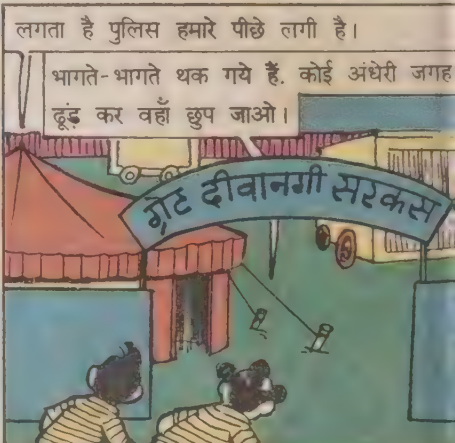 लगता है पुलिस हमारे पीछे लगी है।
भागते-भागते थक गये हैं. कोई अंधेरी जगह
ढूंढ़ कर वहाँ छुप जाओ।
ग्रेट दीवानगी सरकस